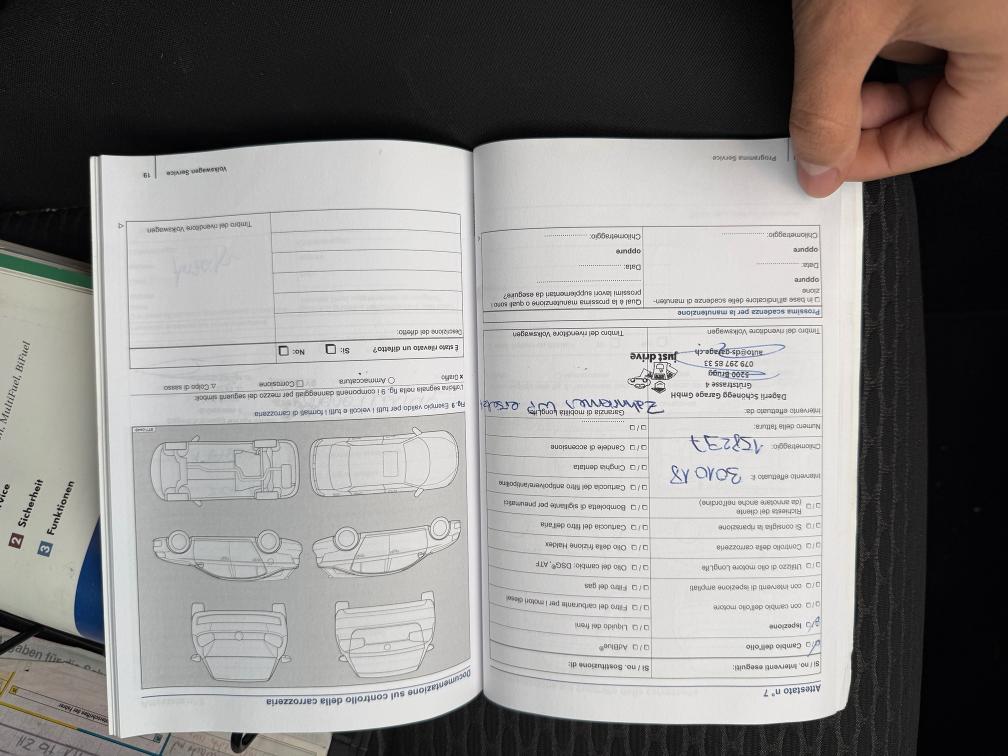 Attestato n° 7
Sì / no. Interventi eseguiti:
Cambio dell'olio
Ispezione
con cambio dell'olio motore
con interventi di ispezione ampliati
Utilizzo di olio motore LongLife
Controllo della carrozzeria
Si consiglia la riparazione
Richiesta del cliente
(da annotare anche nell'ordine)
Intervento effettuato il: 30 10 18
Chilometraggio: 158237
Numero della fattura:
Intervento effettuato da:
Dagerli Schönegg Garage GmbH
Grütstrasse 4
5200 Brugg
079 297 85 33
auto@ds-garage.ch
just drive
Timbro del rivenditore Volkswagen
Sì / no. Sostituzione di:
AdBlue®
Liquido dei freni
Filtro del carburante per i motori diesel
Filtro del gas
Olio del cambio: DSG®, ATF
Olio della frizione Haldex
Cartuccia del filtro dell'aria
Bomboletta di sigillante per pneumatici
Cartuccia del filtro antipolvere/antipolline
Cinghia dentata
Candele di accensione
Garanzia di mobilità LongLife
Zahnriemen WP ersetzt
Timbro del rivenditore Volkswagen
Prossima scadenza per la manutenzione
in base all'indicatore delle scadenze di manuten-
zione
oppure
Data:
oppure
Chilometraggio:
Qual è la prossima manutenzione o quali sono i
prossimi lavori supplementari da eseguire?
Data:
oppure
Chilometraggio:
Programma Service
Documentazione sul controllo della carrozzeria
Fig. 9 Esempio valido per tutti i veicoli e tutti i formati di carrozzeria
L'officina segnala nella fig. 9 i componenti danneggiati per mezzo dei seguenti simboli:
x Graffio
○ Ammaccatura
□ Corrosione
△ Colpo di sasso
È stato rilevato un difetto?
Sì:
No:
Descrizione del difetto:
Timbro del rivenditore Volkswagen
Volkswagen Service
19
MultiFuel, BiFuel
2 Sicherheit
3 Funktionen